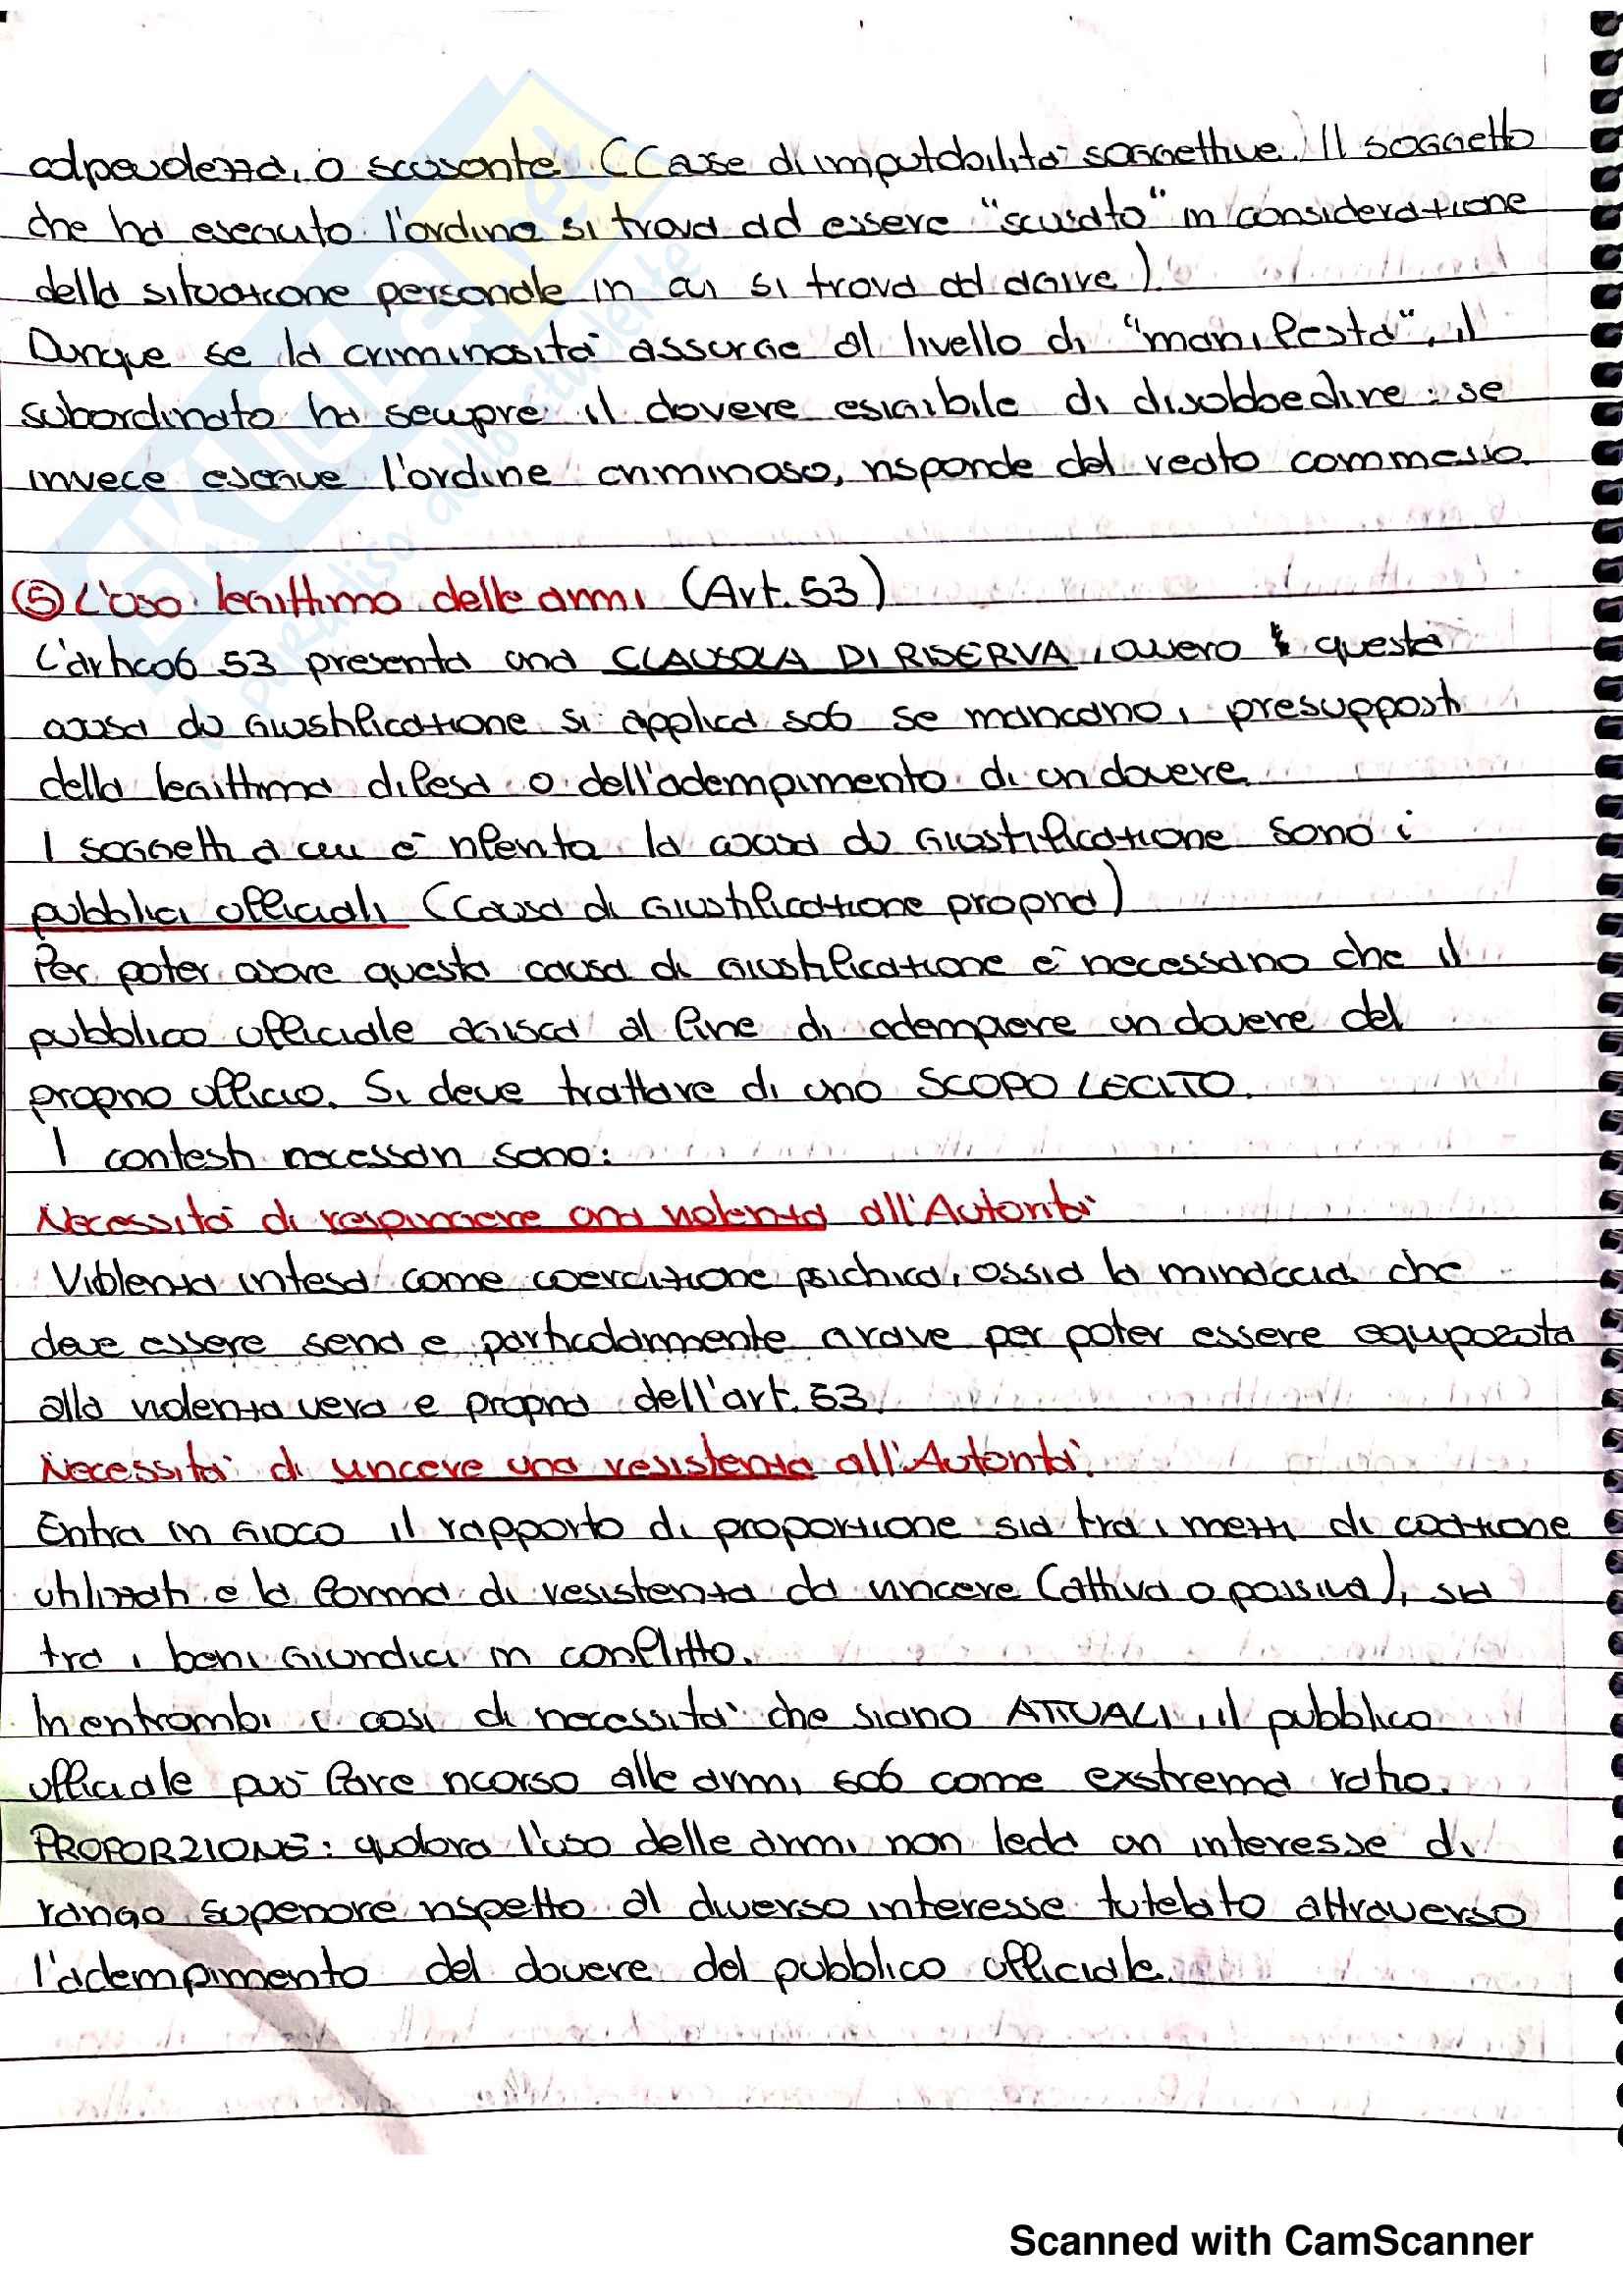 colpevolezza, o scusante (Cause di imputabilità soggettive. Il soggetto
che ha eseguito l'ordine si trova ad essere "scusato" in considerazione
della situazione personale in cui si trova ad agire)
Dunque se la criminosità assurge al livello di "manifesta", il
subordinato ha sempre il dovere esigibile di disobbedire: se
invece esegue l'ordine criminoso, risponde del reato commesso.
⑤ L'uso legittimo delle armi (Art. 53)
L'articolo 53 presenta una CLAUSOLA DI RISERVA, ovvero questa
causa di giustificazione si applica solo se mancano i presupposti
della legittima difesa o dell'adempimento di un dovere.
I soggetti a cui è riferita la causa di giustificazione sono i
pubblici ufficiali (Causa di giustificazione propria)
Per poter usare questa causa di giustificazione è necessario che il
pubblico ufficiale agisca al fine di adempiere un dovere del
proprio ufficio. Si deve trattare di uno SCOPO LECITO.
I contesti necessari sono:
Necessità di respingere una violenza all'Autorità
Violenza intesa come coercizione psichica, ossia la minaccia che
deve essere seria e particolarmente grave per poter essere equiparata
alla violenza vera e propria dell'art. 53.
Necessità di vincere una resistenza all'Autorità.
Entra in gioco il rapporto di proporzione sia tra i mezzi di coazione
utilizzati e la forma di resistenza da vincere (attiva o passiva), sia
tra i beni giuridici in conflitto.
In entrambi i casi di necessità che siano ATTUALI, il pubblico
ufficiale può fare ricorso alle armi solo come exstrema ratio.
PROPORZIONE: qualora l'uso delle armi non leda un interesse di
rango superiore rispetto al diverso interesse tutelato attraverso
l'adempimento del dovere del pubblico ufficiale.
SKUOLA.net
il paradiso dello studente
Scanned with CamScanner